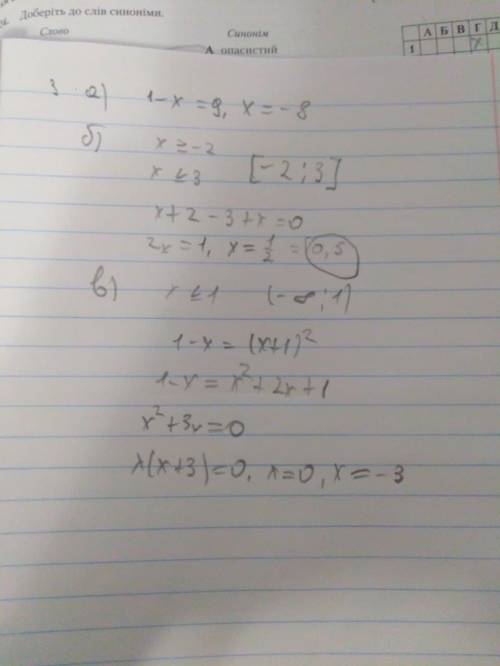 24. Доберіть до слів синоніми.
Слово Синонім
А опасистий
А Б В Г Д
1 X
3 а) 1-x=9, x=-8
б) x≥-2
x≤3 [-2;3]
x+2-3+x=0
2x=1, x=1/2=0,5
в) x≤1 (-∞;1)
1-x=(x+1)²
1-x=x²+2x+1
x²+3x=0
x(x+3)=0, x=0, x=-3